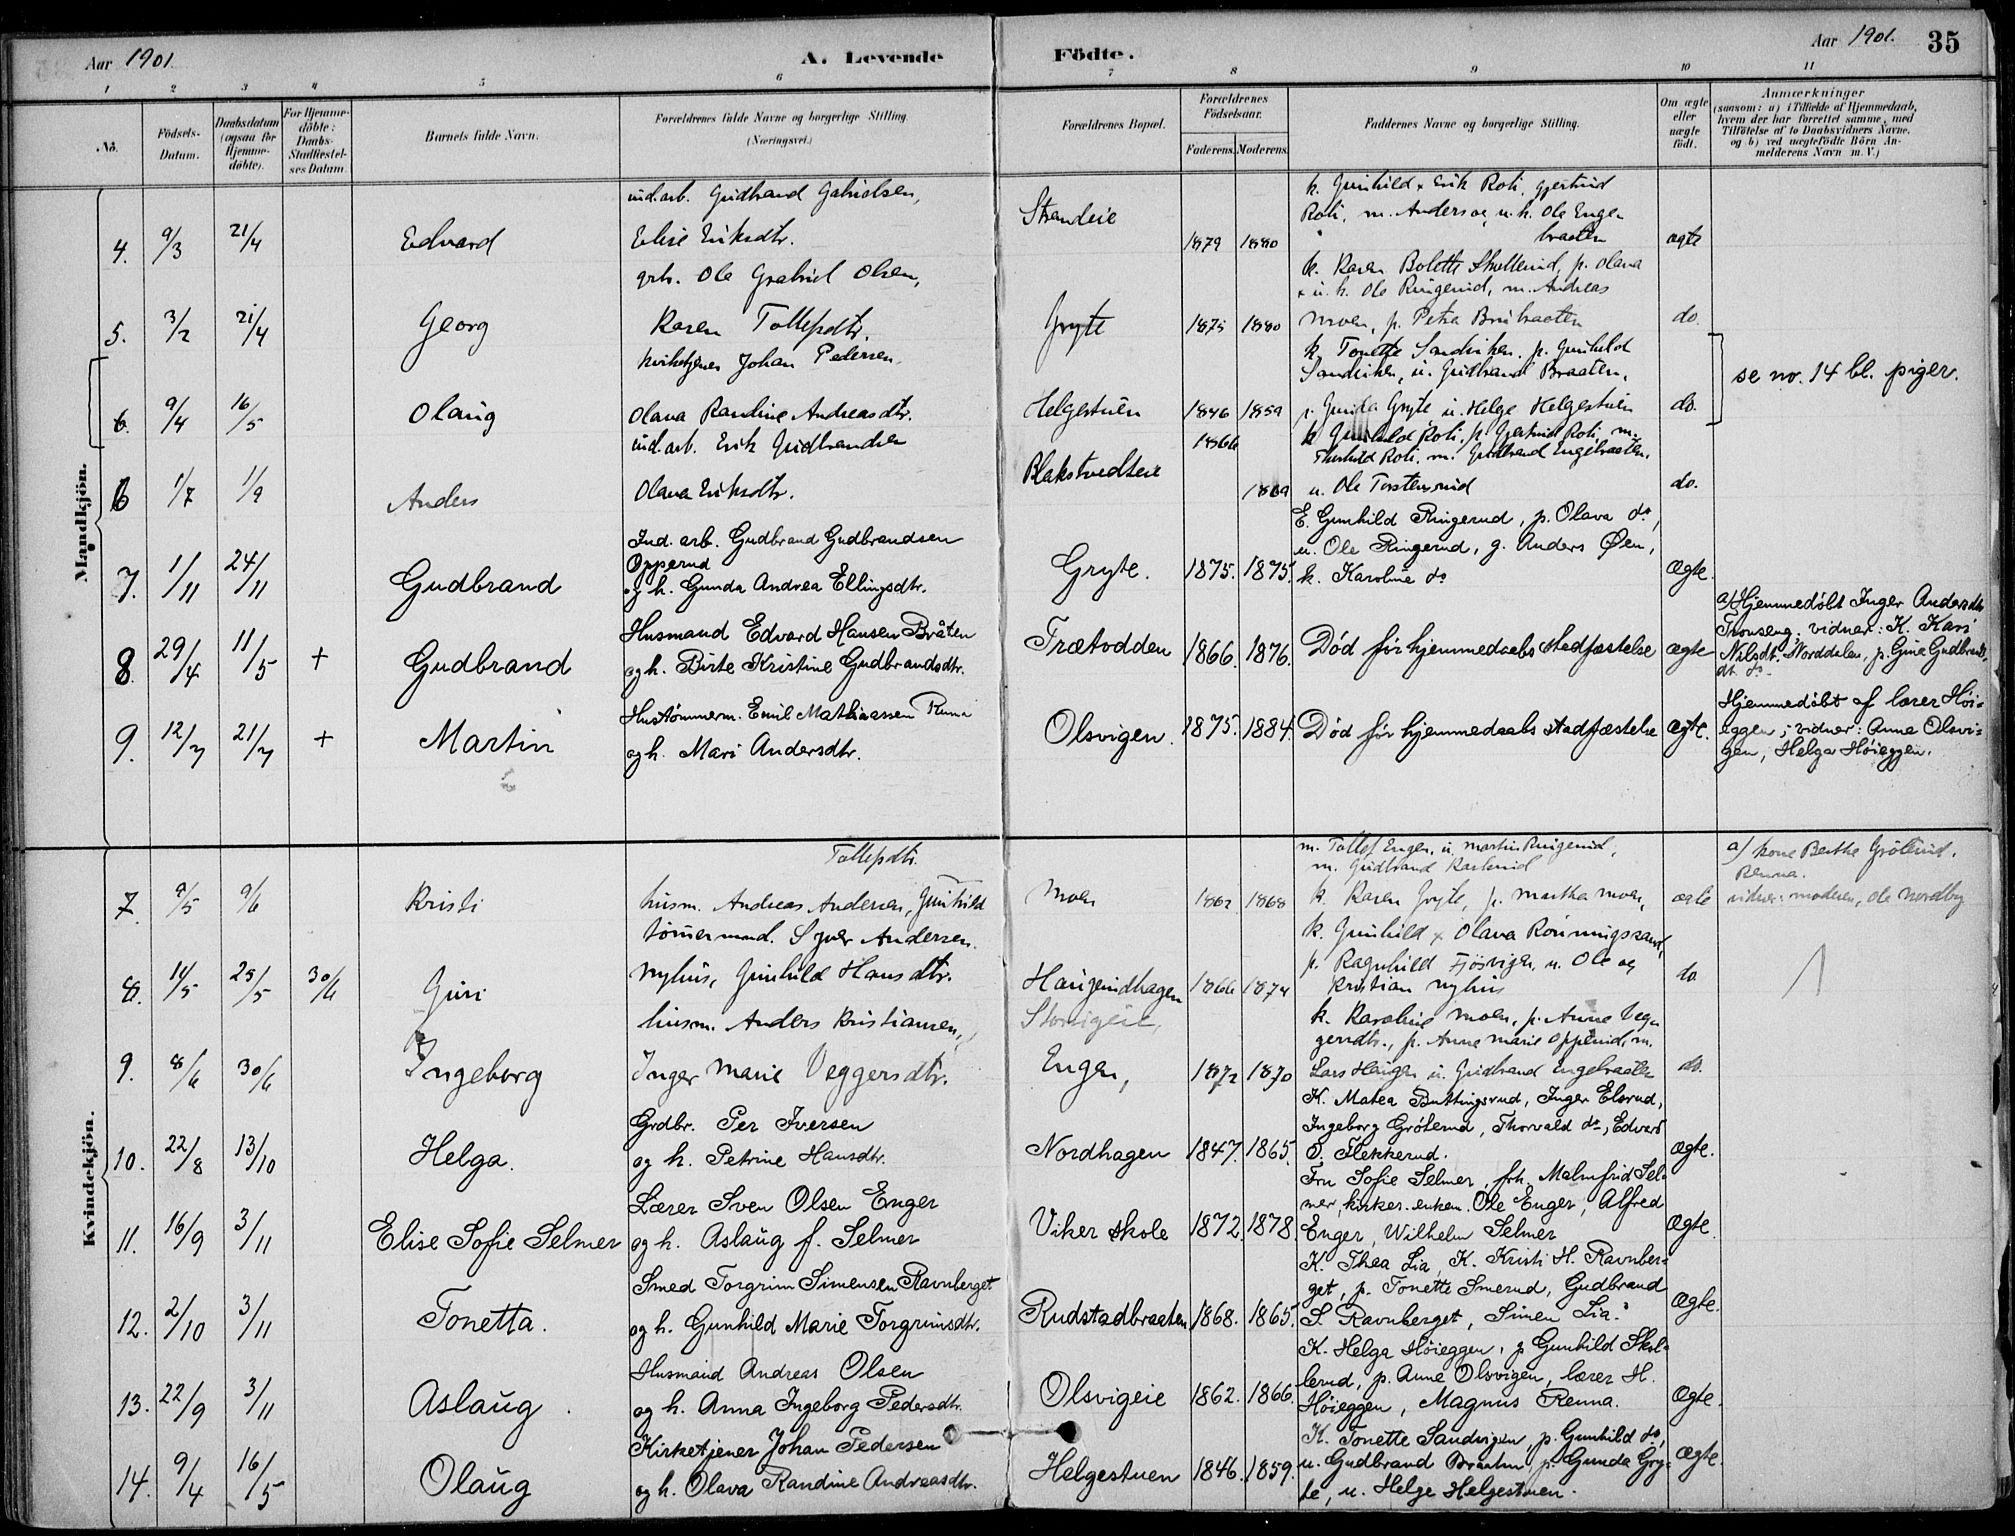 Aar 1901.
A. Levende
Födte.
Aar 1901. 35
1 2 3 4 5 6 7 8 9 10 11
No.
Födsels-Datum.
Daabsdatum (ogsaa for Hjemmedöbte).
For Hjemmedöbte: Daabs-Stadfæstelses Datum.
Barnets fulde Navn.
Forældrenes fulde Navne og borgerlige Stilling. (Næringsvei.)
Forældrenes Bopæl.
Forældrenes Födselsaar.
Faderens. Moderens.
Faddernes Navne og borgerlige Stilling.
Om ægte eller uægte födt.
Anmærkninger
(saasom: a) i Tilfælde af Hjemmedaab, hvem der har forrettet samme, med Tilföielse af to Daabsvidners Navne, og b) ved uægtefödte Börn Anmelderens Navn m. V.)
Mandkjön.
ind.arb. Gudbrand Gabrielsen,
k. Gunhild x Erik Roti, Gjertrud
Roti, m. Anders og u. h. Ole Engebraaten
4. 9/3 21/4 Edvard Elise Eriksdtr. Strandeie 1879 1880 ægte
grb. Ole Gabriel Olsen,
k. Karen Bolette Skollerud, p. Olava
x u. h. Ole Ringerud, m. Andreas
5. 3/2 21/4 Georg Karen Tollefsdtr. Gryte 1875 1880 Moen, p. Petra Bråbraaten do.
Kirketjener Johan Pedersen
k. Tonette Sandviken, p. Gunhild
Sandviken, u. Gudbrand Braaten,
6. 9/4 16/5 Olaug Olava Randine Andreasdtr. Helgestuen 1846 1859 p. Gunda Gryte u. Helge Helgestuen do.
se no. 14 bl. piger.
ind.arb. Erik Gudbrandsen 1866
k. Gunhild Roti, p. Gjertrud Roti, m.
Thorkild Roti, m. Gudbrand Engebraaten,
6 1/7 1/9 Anders Olava Eriksdtr. Blakstvedteie 1869 u. Ole Torstensrud do.
Ind. arb. Gudbrand Gudbrandsen
Opperud
E. Gunhild Ringerud, p. Olava do,
u. Ole Ringerud, g. Anders Øen,
7. 1/11 24/11 Gudbrand og h. Gunda Andrea Ellingsdtr. Gryte. 1875. 1875. k. Karoline do Ægte.
Husmand Edvard Hansen Bråten
8. 29/4 11/5 + Gudbrand og h. Birte Kristine Gudbrandsdtr. Trætodden 1866. 1876. Död för hjemmedaabs stadfæstelse ægte
a) Hjemmedöbt Inger Andersdtr
Tronseng; vidner: K. Kari
Nilsdt. Norddalen, p. Gina Gudbrands-
dt. do-
Hustömmerm. Emil Mathiassen Renna
9. 12/7 21/7 + Martin og h. Mari Andersdtr. Olsvigen. 1875. 1884. Död för hjemmedaabs stadfæstelse ægte.
Hjemmedöbt af lærer Höi-
eggen; vidner: Anne Olsvi-
gen, Helga Höieggen.
Kvindekjön.
Tollefsdtr.
m. Tollef Engen, u. Martin Ringerud,
m. Gudbrand Karlsrud
7. 9/5 9/6 Kristi husm. Andreas Andersen, Gunhild Moen 1862 1868 k. Karen Gryte, p. Martha Moen, ægte
a) kone Berthe Gröterud.
Renna.
vidner: moderen, Ole Nordby
tömmermand. Syver Andersen
k. Gunhild x Olava Rönningsand,
8. 14/5 25/5 30/6 Guri Nyhus, Gunhild Hansdtr. Haugerudhagen 1866 1874 p. Ragnhild Fjösvigen, u. Ole og
Kristian Nyhus do.
husm. Anders Kristiansen,
Storsigeie,
k. Karoline Moen, p. Anne Veg-
gersdtr., p. Anne Marie Opperud, m.
9. 8/6 30/6 Ingeborg Inger Marie Veggersdtr. Engen, 1872 1870 Lars Haugen u. Gudbrand Engebraaten do.
Grdbr. Per Iversen
K. Matea Buttingsrud, Inger Elsrud,
Ingeborg Gröterud, Thorvald do, Edvard
10. 22/8 13/10 Helga. og h. Petrine Hansdtr. Nordhagen 1847. 1865. O. Flekkerud. Ægte.
Lærer Sven Olsen Enger
Fru Sofie Selmer, frk. Malmfrid Sel-
mer, kirkes. enken. Ole Enger, Alfred
11. 16/9 3/11 Elise Sofie Selmer og h. Aslaug f. Selmer Viker skole 1872. 1878. Enger, Wilhelm Selmer Ægte.
Smed Torgrim Simensen Ravnberget
K. Thea Lia, K. Kristi H. Ravnber-
get, p. Tonette Smerud, Gudbrand
12. 2/10 3/11 Tonetta. og h. Gunhild Marie Torgrimsdtr. Rudstadbraaten 1868. 1865. S. Ravnberget, Simen Lia. Ægte.
Husmand Andreas Olsen
K. Helga Höieggen, p Gunhild Skol-
lerud, p. Anne Olsvigen, lærer H.
13. 22/9 3/11 Aslaug. og h. Anna Ingeborg Pedersdtr. Olsvigeie 1862. 1866. Höieggen, Magnus Renna. Ægte.
Kirketjener Johan Pedersen
K. Tonette Sandvigen, p. Gunhild do,
14. 9/4 16/5 Olaug og h. Olava Randine Andreasdtr. Helgestuen 1846. 1859. u. Gudbrand Braaten p. Gunda Gry-
te, u. Helge Helgestuen. Ægte.